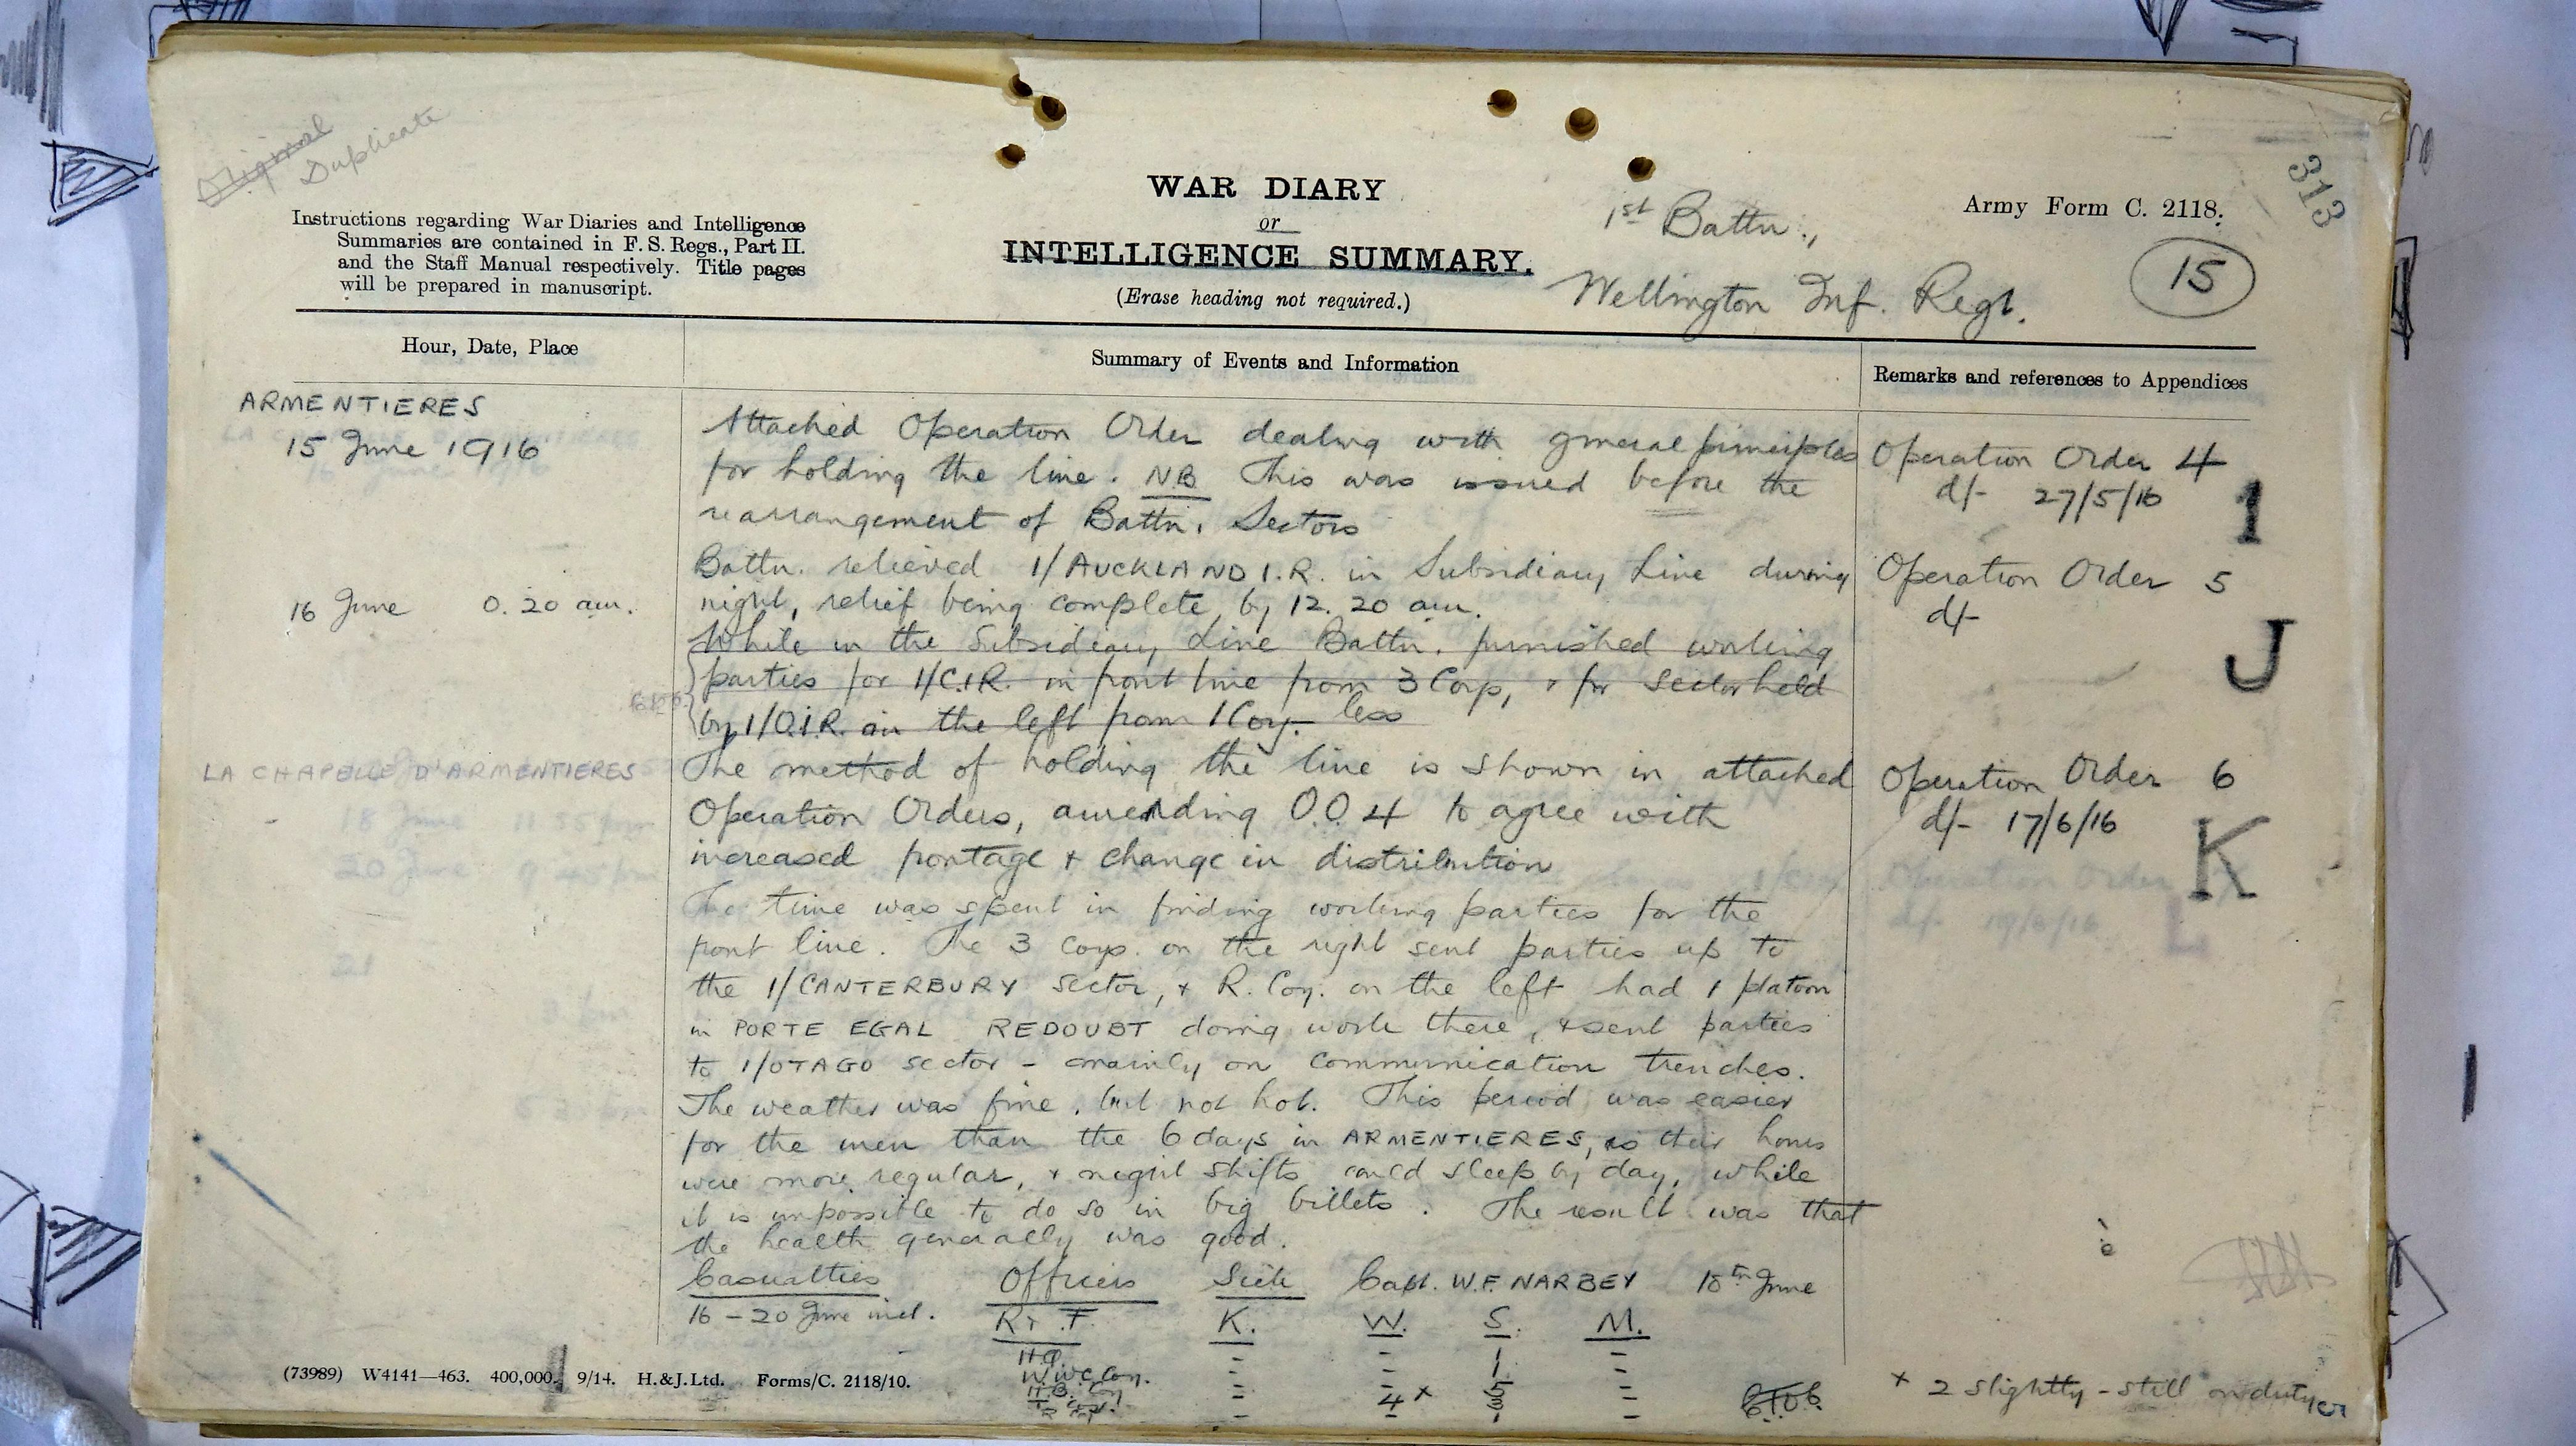 Original
Duplicate
313
Instructions regarding War Diaries and Intelligence
Summaries are contained in F. S. Regs., Part II.
and the Staff Manual respectively. Title pages
will be prepared in manuscript.
WAR DIARY
or
INTELLIGENCE SUMMARY.
(Erase heading not required.)
1st Battn.,
Wellington Inf. Regt.
Army Form C. 2118.
15
Hour, Date, Place
Summary of Events and Information
Remarks and references to Appendices
ARMENTIERES
15 June 1916
Attached Operation Order dealing with general principles
for holding the line. N.B. This was issued before the
rearrangement of Battn. Sectors
Operation Order 4
d/- 27/5/16
1
16 June 0.20 am.
Battn. relieved 1/AUCKLAND I.R. in Subsidiary Line during
night, relief being complete by 12.20 am.
Operation Order 5
d/-
J
While in the Subsidiary Line Battn. furnished working
parties for 1/C.I.R. in front line from 3 Coys, & for Sector held
by 1/O.I.R. on the left from 1 Coy. less
LA CHAPELLE D'ARMENTIERES
The method of holding the line is shown in attached
Operation Orders, amending O.O.4 to agree with
increased frontage & change in distribution
Operation Order 6
d/- 17/6/16
K
The time was spent in finding working parties for the
front line. The 3 Coys. on the right sent parties up to
the 1/CANTERBURY sector, & R. Coy. on the left had 1 platoon
in PORTE EGAL REDOUBT doing work there, & sent parties
to 1/OTAGO sector - mainly on communication trenches.
The weather was fine, but not hot. This period was easier
for the men than the 6 days in ARMENTIERES, as their hours
were more regular, & night shifts could sleep by day, while
it is impossible to do so in big billets. The result was that
the health generally was good.
Casualties Officers Sick Capt. W.F. NARBEY 18th June
16 - 20 June incl. R & F. K. W. S. M.
H.Q. - - 1 -
W.W.C. Coy. - - 1 -
H.B. Coy = =
4 x
x 2 slightly - still on duty
(73989) W4141—463. 400,000. 9/14. H.&J.Ltd. Forms/C. 2118/10.